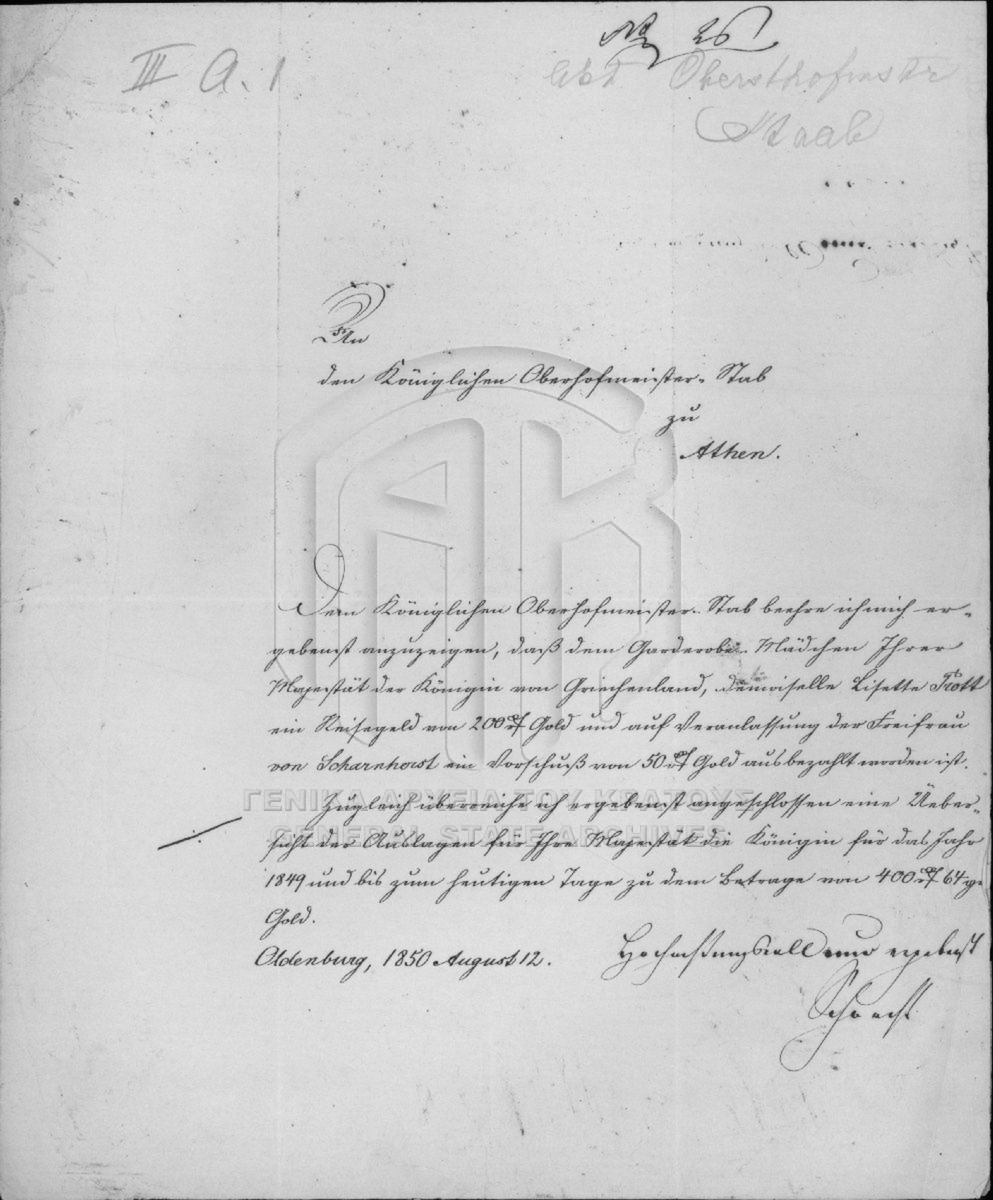 No 26
III A. 1
Abt Obersthofmstr
Staab
An
den Königlichen Oberhofmeister-Stab
zu
Athen.
Dem Königlichen Oberhofmeister-Stab beehre ich mich er-
gebenst anzuzeigen, daß dem Garderobe-Mädchen Ihrer
Majestät der Königin von Griechenland, Demoiselle Lisette Trott
ein Reisegeld von 200 rf Gold und auf Veranlassung der Freifrau
von Scharnhorst ein Vorschuß von 50 rf Gold ausbezahlt worden ist.
Zugleich überreiche ich ergebenst angeschlossen eine Ueber-
sicht der Auslagen für Ihre Majestät die Königin für das Jahr
1849 und bis zum heutigen Tage zu dem Betrage von 400 rf 64 gr
Gold.
Oldenburg, 1850 August 12.
Hochachtungsvoll und ergebenst
ΓΕΝΙΚΑ ΑΡΧΕΙΑ ΤΟΥ ΚΡΑΤΟΥΣ
GENERAL STATE ARCHIVES